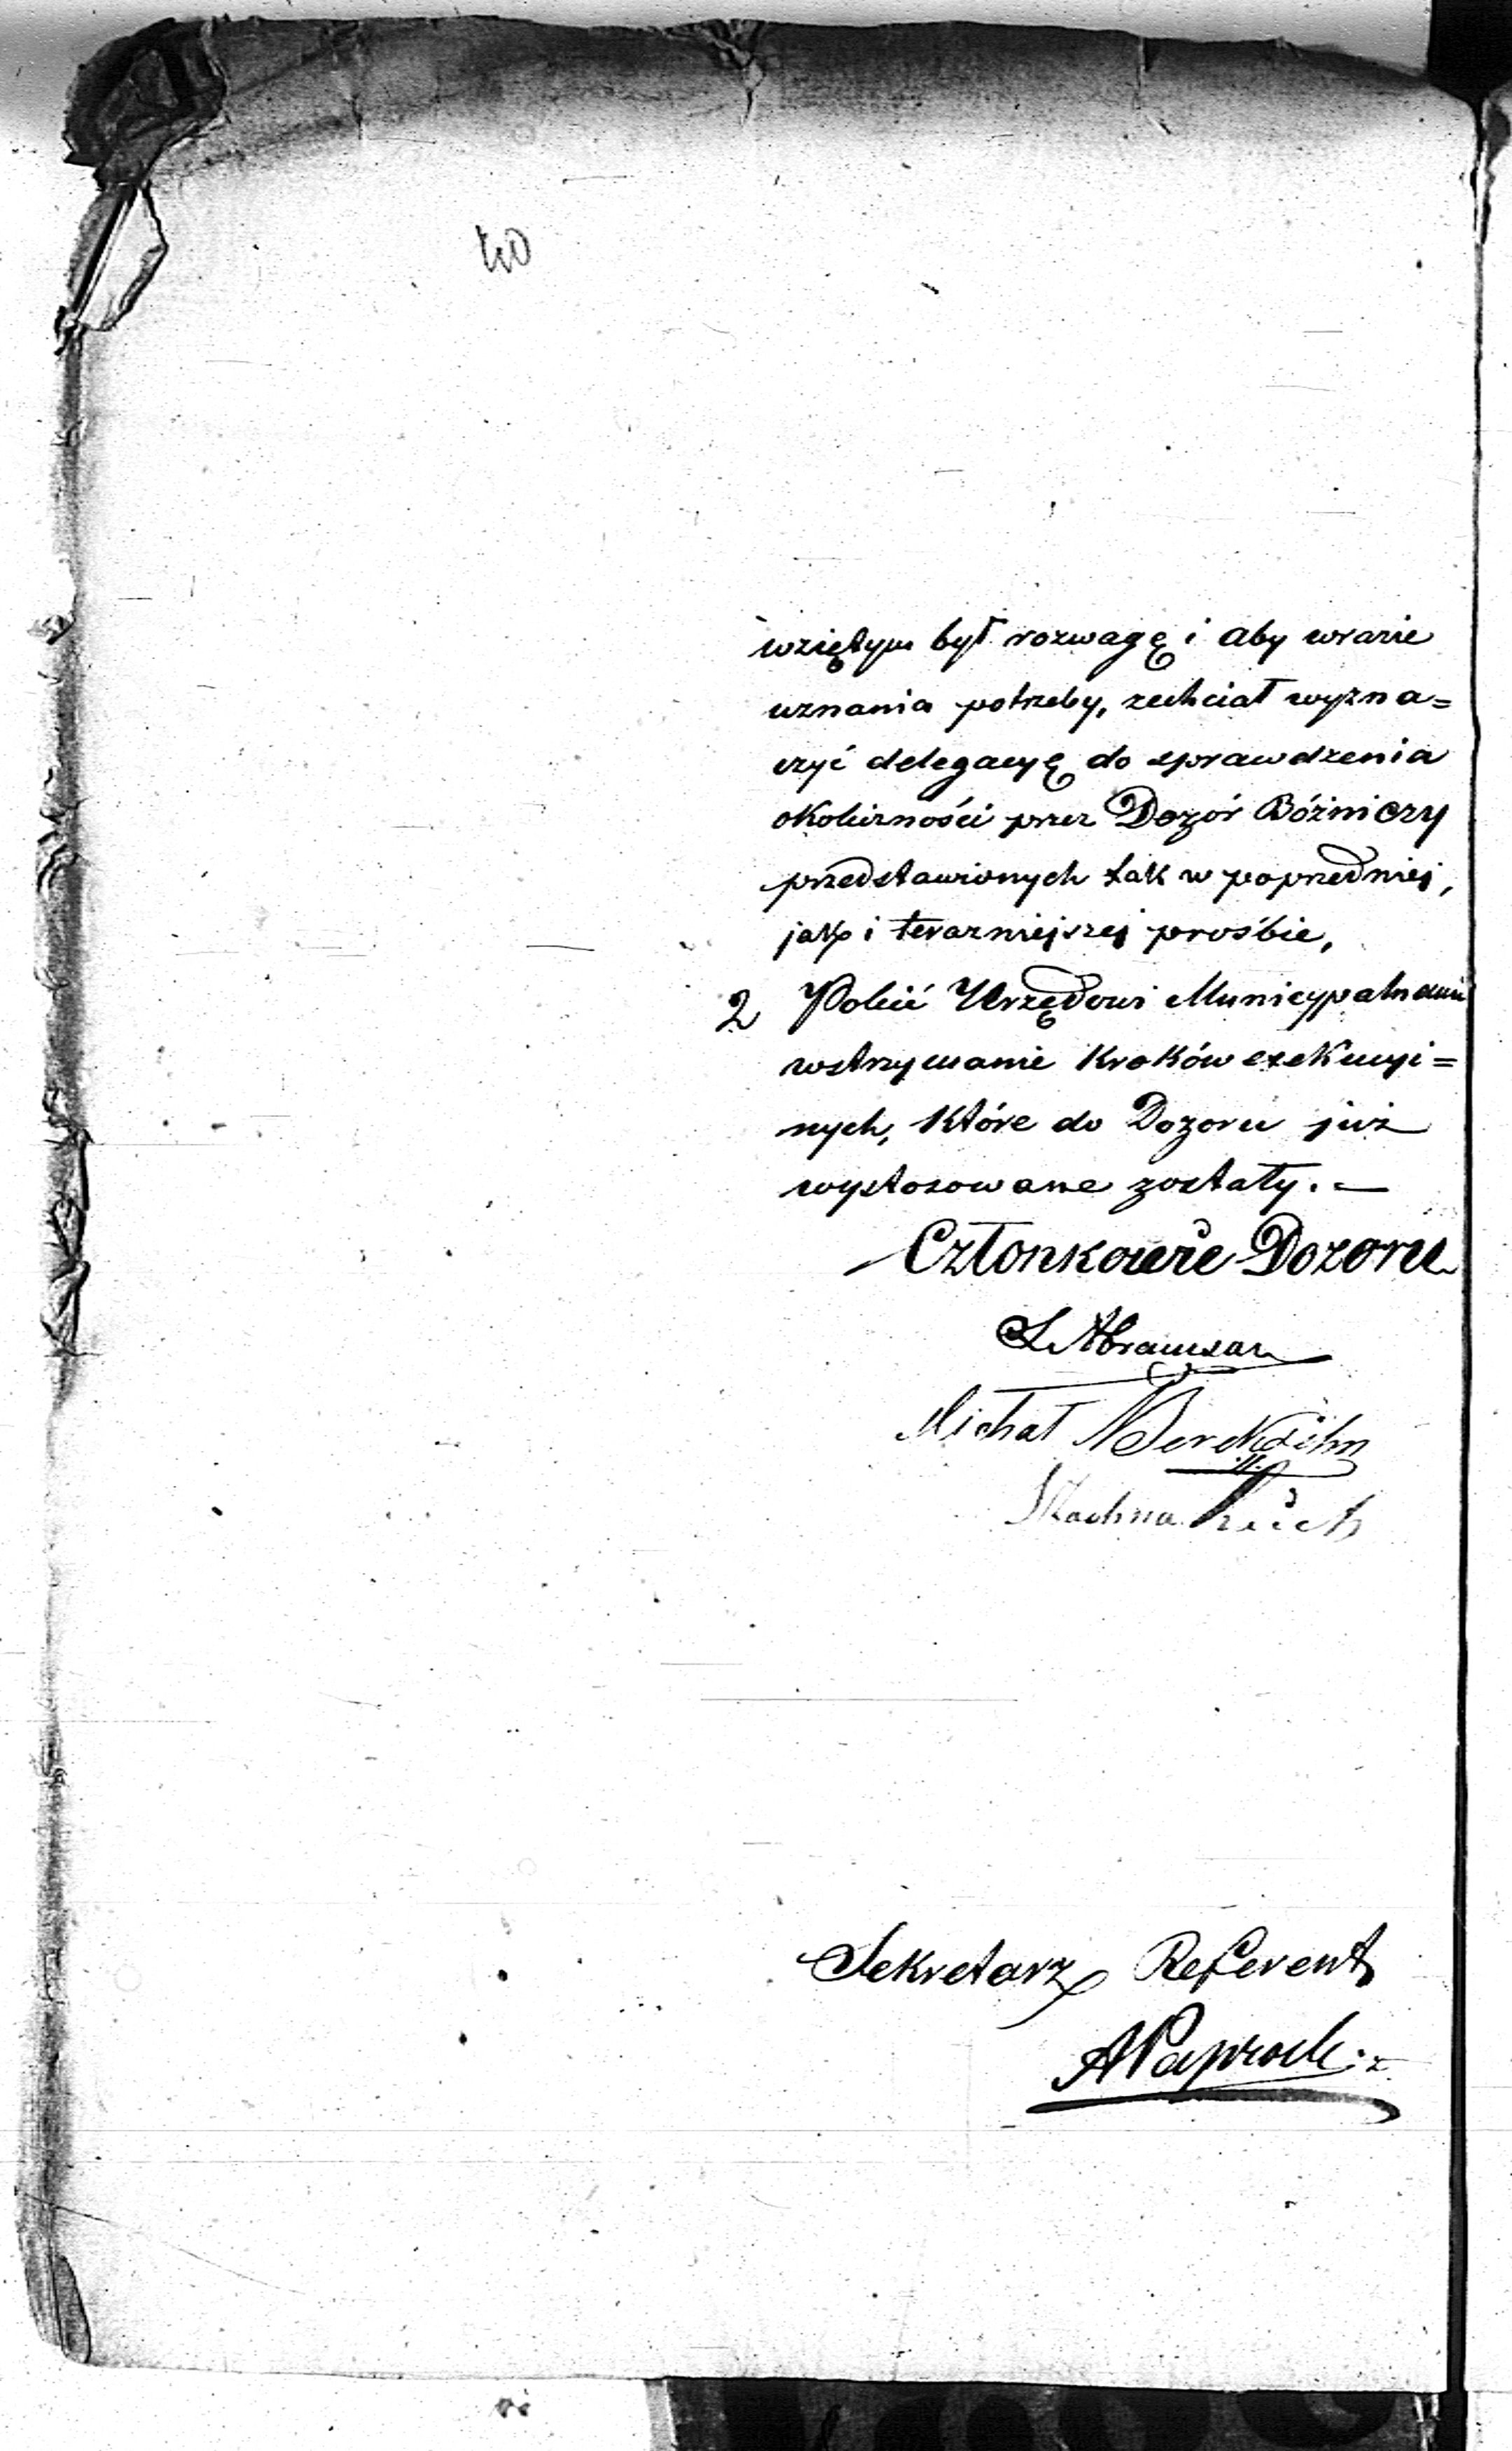 40
wziętym był rozwagę i aby wrazie
uznania potrzeby, zechciał wyzna=
czyć delegacyę do sprawdzenia
okoliczności przez Dozór Bóżniczy
przedstawionych tak w poprzedniej,
jak i terazniejszej prośbie,
2 Polecić Urzędowi Municypalnemu
wstrzymanie kroków exekucyi=
nych, które do Dozoru już
wystosowane zostały. —
Członkowie Dozoru
L Abramson
Michał
Sekretarz Referent
A Paprocki